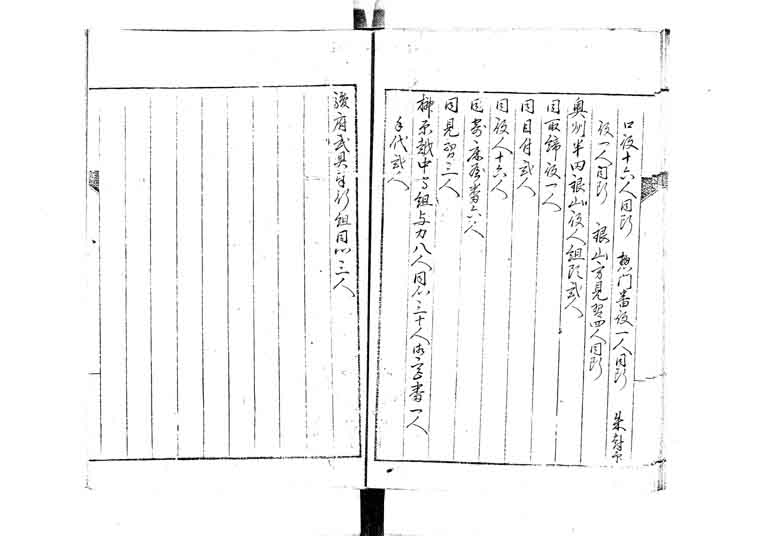 口役十六人同断 惣門番役一人同断
役一人同断 銀山方見習四人同断
奥州半田銀山役人組頭弐人
同取締役一人
同目付弐人
同役人十六人
同番六人
同見習三人
榊原越中守組与力八人同心三十人書一人
手代弐人
駿府武具奉行組同心三人